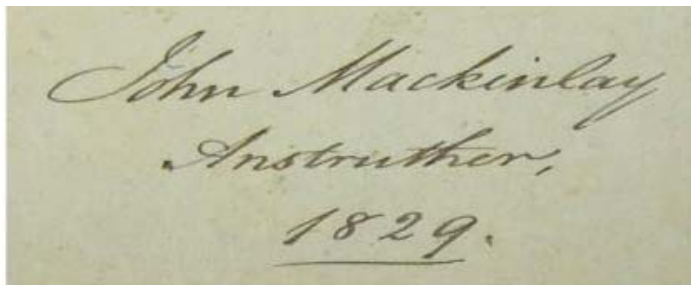 John Mackinlay
Anstruther,
1829.